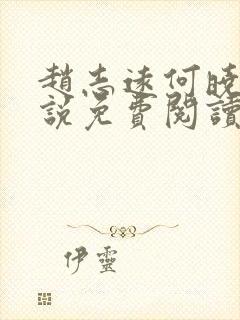 趙志遠何曉
說免費閱讀
伊靈